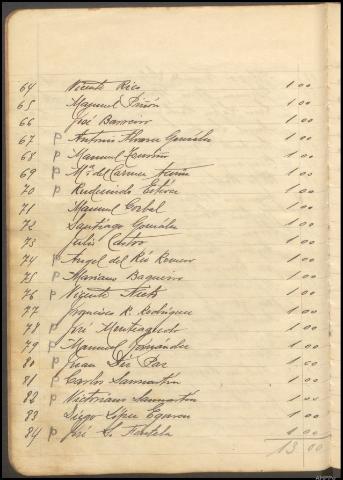 64 Vicente Rico 1 00
65 Manuel Piñón 1 00
66 José Barreiro 1 00
67 P Antonio Alvarez González 1 00
68 P Manuel 1 00
69 P Mª del Carmen 1 00
70 P Rudesindo Esteve 1 00
71 Manuel Corbel 1 00
72 Santiago González 1 00
73 Julio Castro 1 00
74 P Angel del Río 1 00
75 P Mariano Baqueiro 1 00
76 P Vicente 1 00
77 P Francisco R. Rodríguez 1 00
78 P José Monteagudo 1 00
79 P Manuel Fernández 1 00
80 P Juan Diz Paz 1 00
81 P Carlos Sanmartín 1 00
82 P Victoriano Sanmartín 1 00
83 Diego López 1 00
84 P José S. 1 00
13 00